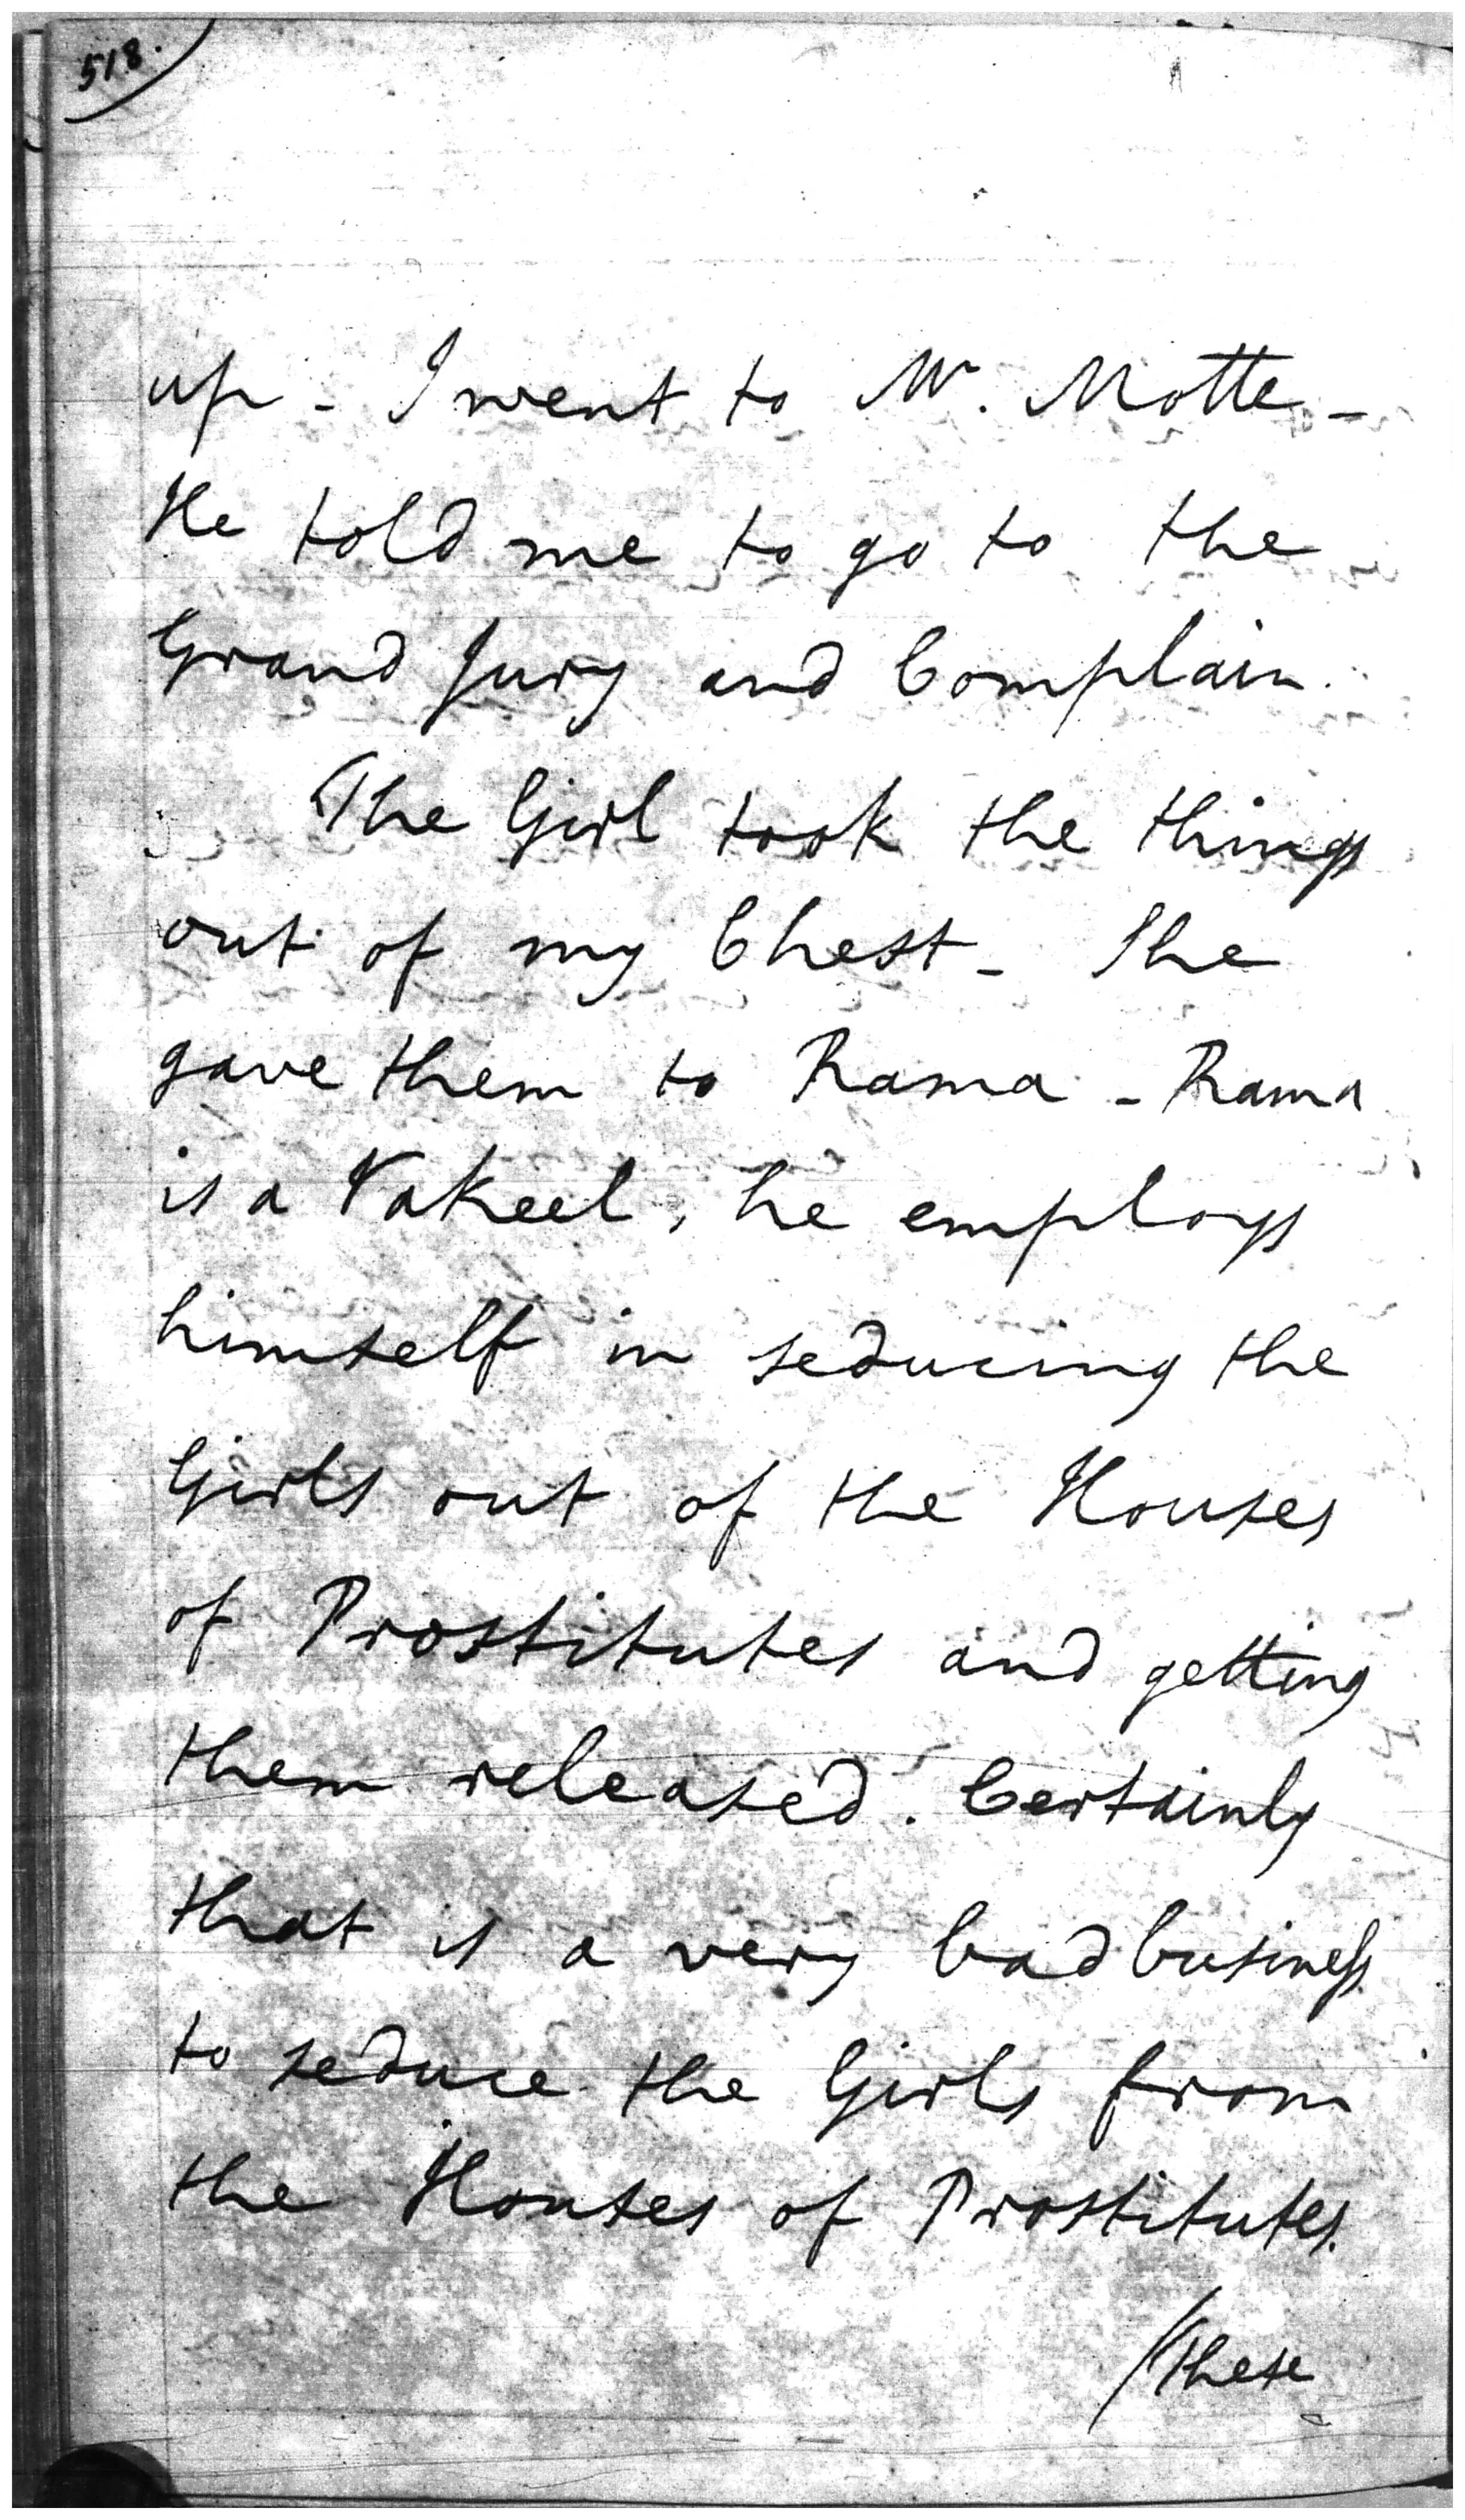 518.
up - I went to Mr. Motte -
He told me to go to the
Grand Jury and Complain.
The Girl took the things
out of my Chest - She
gave them to Rama - Rama
is a Vakeel, he employs
himself in seducing the
Girls out of the Houses
of Prostitutes and getting
them released. Certainly
that is a very bad business
to seduce the Girls from
the Houses of Prostitutes.
/These